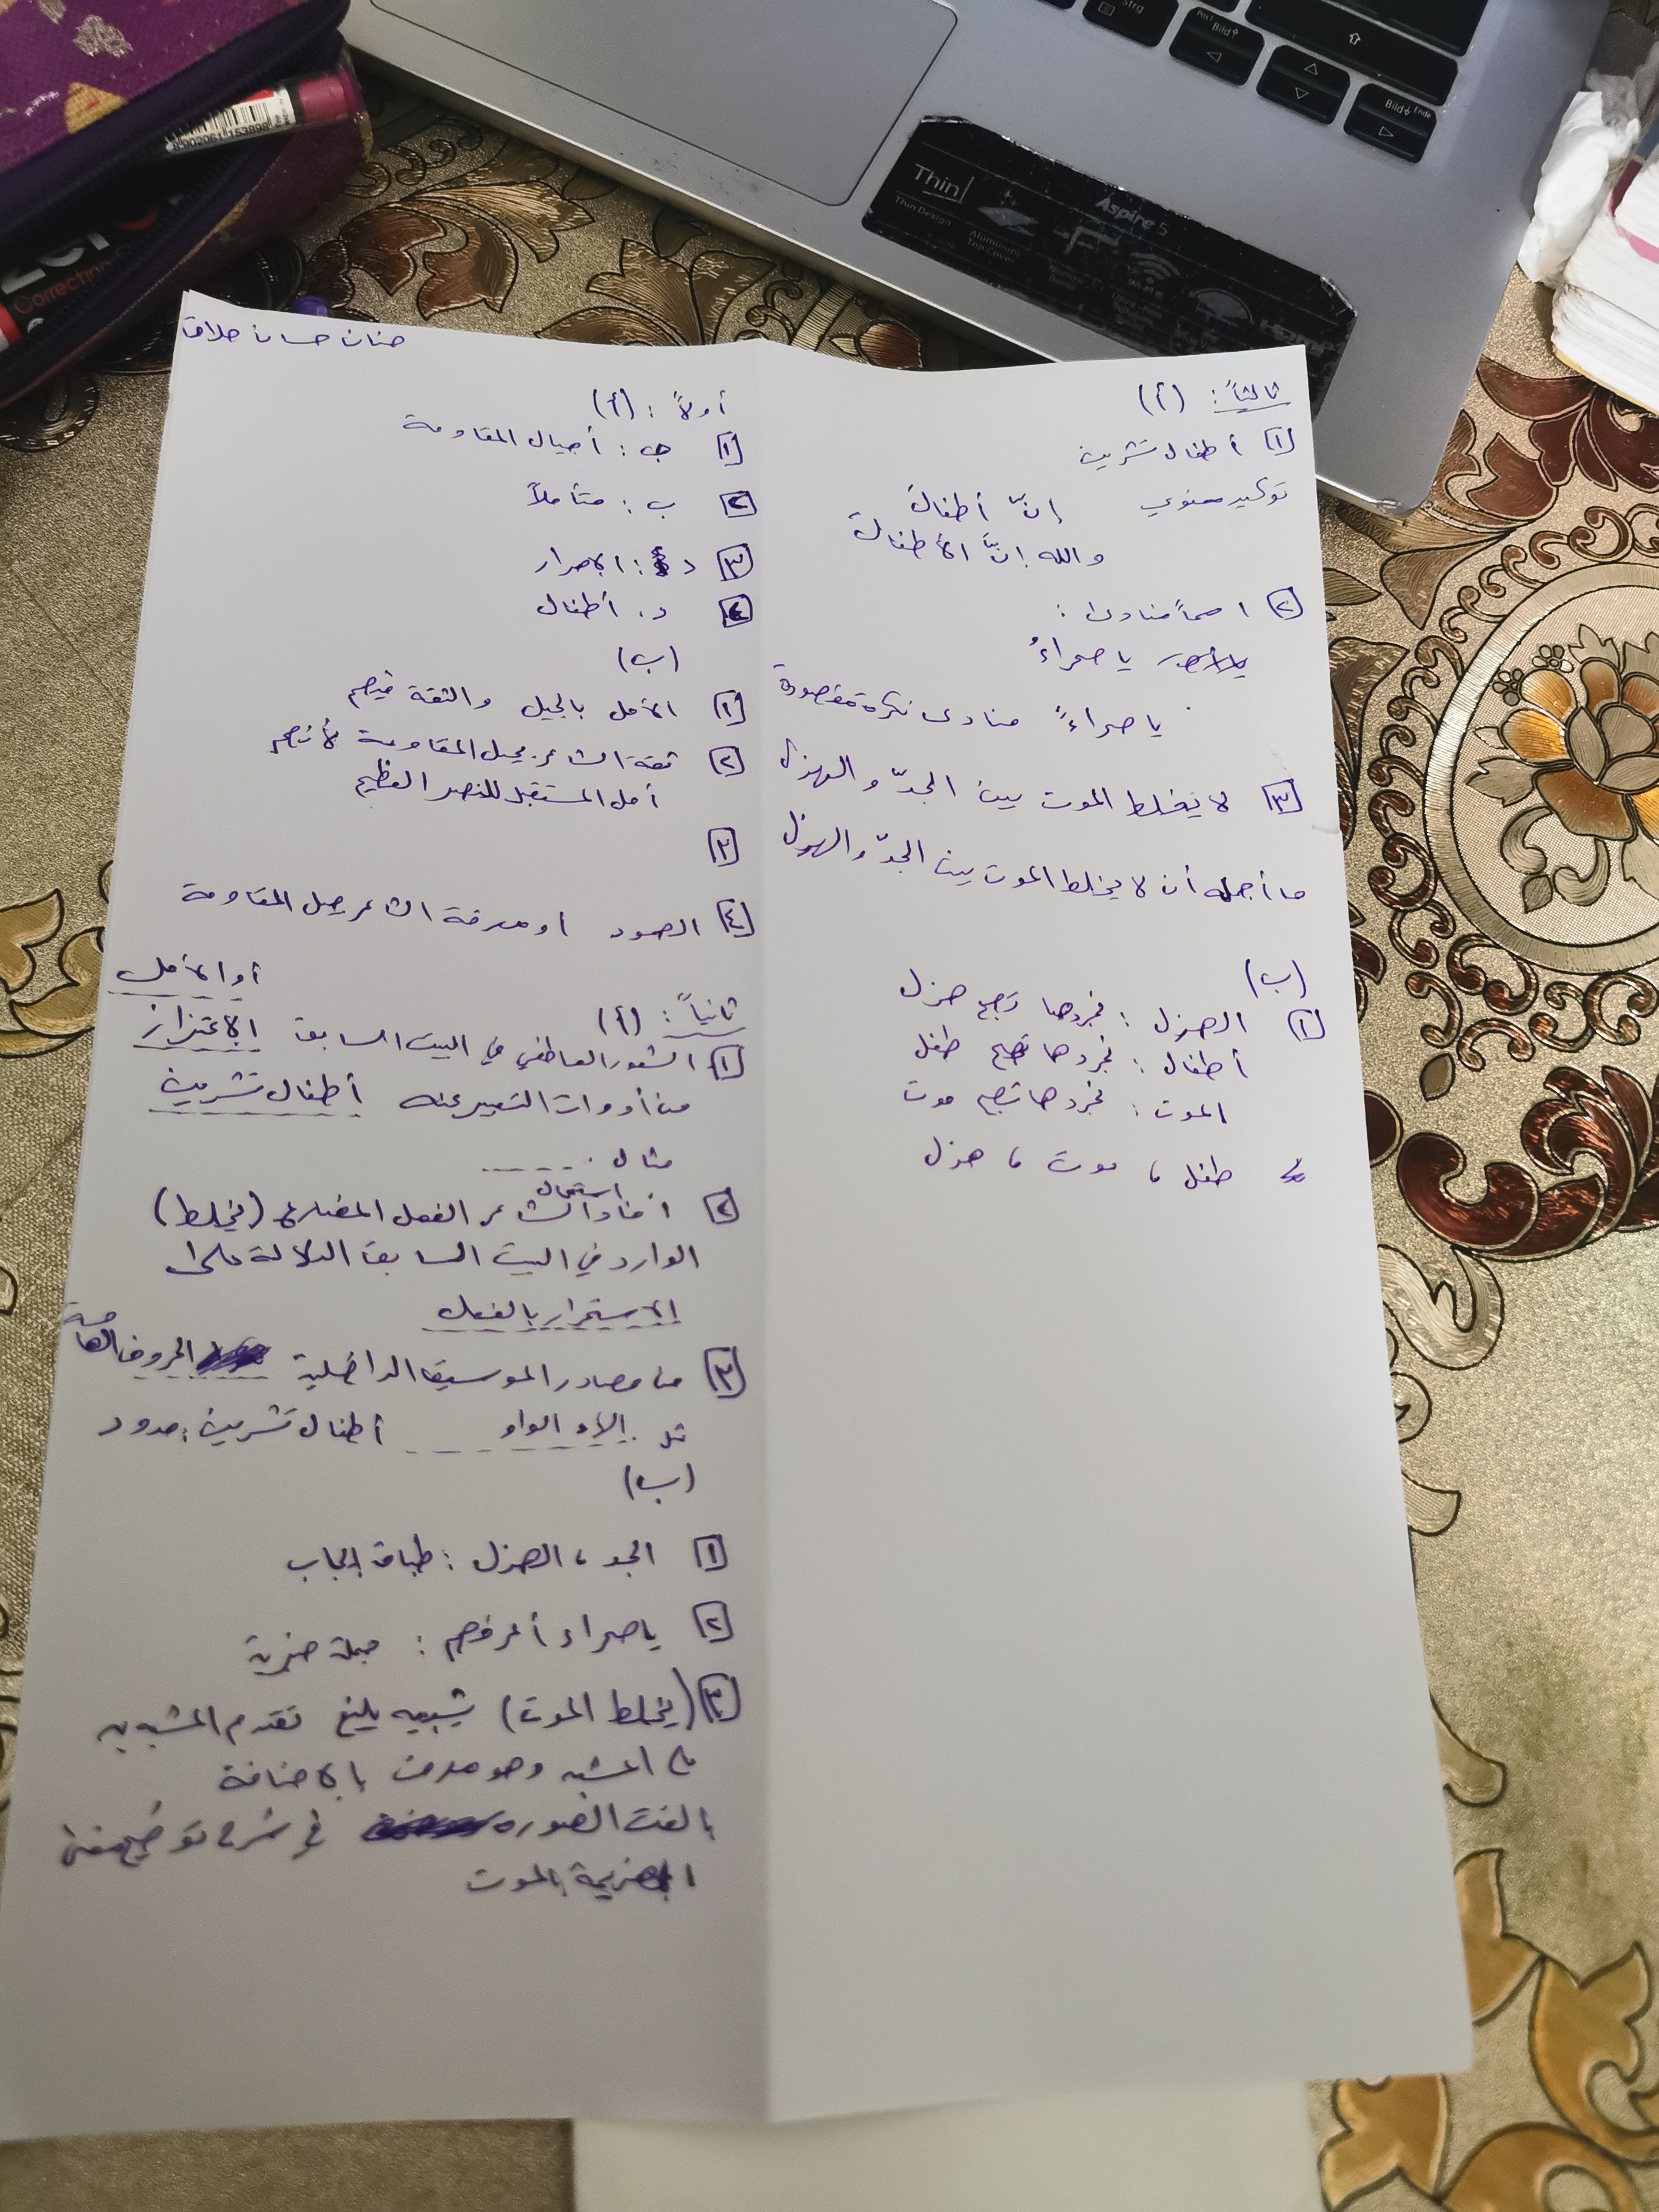 حنان حسان حلاق
أولاً : (أ)
١ ج : أجيال المقاومة
٢ ب : متأملاً
٣ د : الإصرار
٤ د. أطفال
(ب)
١ الأمل بالجيل والثقة فيهم
٢ ثقة الشاعر بجيل المقاومة لأنهم
أمل المستقبل للنصر العظيم
٣
٤ الصمود أو معرفة الشاعر جيل المقاومة
أو الأمل
ثانياً : (أ)
١ الشعور العاطفي في البيت السابق الاعتزاز
من أدوات التعبير عنه أطفال تشرين
مثال
٢ أفاد استعمال الشاعر الفعل المضارع (يخلط)
الوارد في البيت السابق الدلالة على
الاستمرار بالفعل
٣ من مصادر الموسيقا الداخلية الحروف الهامسة
مثل الواو أطفال تشرين
(ب)
١ الجد ، الهزل : طباق إيجاب
٢ يا صحراء أعرفهم : جملة خبرية
٣ (يخلط الموت) تشبيه بليغ تقدم المشبه به
على المشبه وهو معرف بالإضافة
بالغت الصورة في شرح توضيح معنى
الموت
ثالثاً : (أ)
١ أطفال تشرين
توكيد معنوي إنّ أطفالَ
والله إنّ الأطفالَ
٢ اسماً منادى :
يا صحراءُ
يا صحراءً منادى نكرة مقصودة
٣ لا يخلط الموت بين الجدّ والهزل
ما أجمله أن لا يخلط الموت بين الجدّ والهزل
(ب)
١ الهزل : نجردها تصبح هزل
أطفال : نجردها تصبح طفل
الموت : نجردها تصبح موت
طفل ، موت ، هزل
Thin
Thin Design
Aluminum
Top Cover
Aspire 5
Strg
Bild
Post
Bild
Ende
Correction